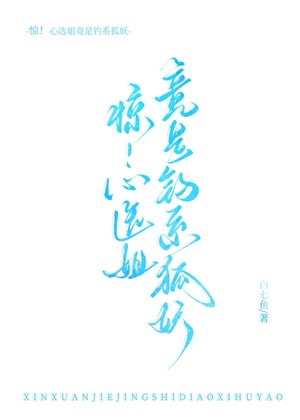 -惊！心选姐竟是钓系狐妖-
惊！心选姐
竟是钓系狐妖
白七鱼/著
XINXUANJIEJINGSHIDIAOXIHUYAO